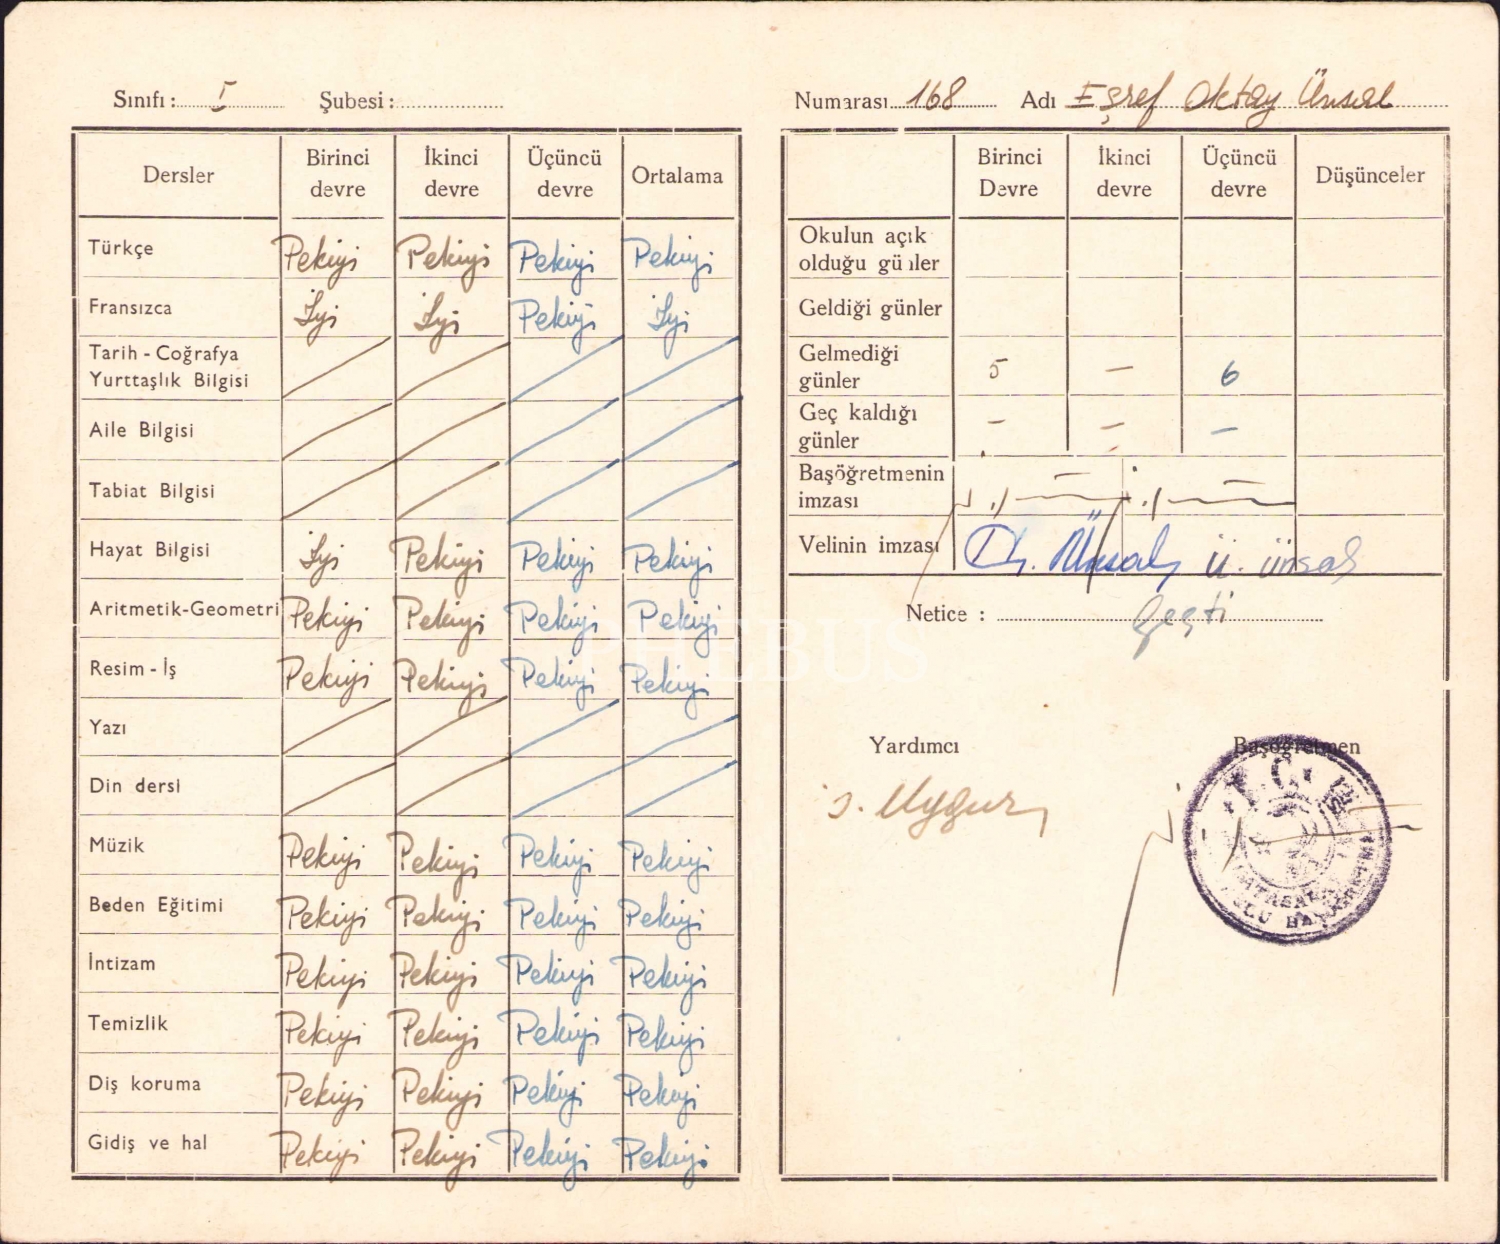 Sınıfı: I Şubesi:
Dersler Birinci devre İkinci devre Üçüncü devre Ortalama
Türkçe Pekiyi Pekiyi Pekiyi Pekiyi
Fransızca İyi İyi Pekiyi İyi
Tarih - Coğrafya
Yurttaşlık Bilgisi
Aile Bilgisi
Tabiat Bilgisi
Hayat Bilgisi İyi Pekiyi Pekiyi Pekiyi
Aritmetik-Geometri Pekiyi Pekiyi Pekiyi Pekiyi
Resim - İş Pekiyi Pekiyi Pekiyi Pekiyi
Yazı
Din dersi
Müzik Pekiyi Pekiyi Pekiyi Pekiyi
Beden Eğitimi Pekiyi Pekiyi Pekiyi Pekiyi
İntizam Pekiyi Pekiyi Pekiyi Pekiyi
Temizlik Pekiyi Pekiyi Pekiyi Pekiyi
Diş koruma Pekiyi Pekiyi Pekiyi Pekiyi
Gidiş ve hal Pekiyi Pekiyi Pekiyi Pekiyi
Numarası 168 Adı Eşref Oktay Ünsal
Birinci Devre İkinci devre Üçüncü devre Düşünceler
Okulun açık
olduğu günler
Geldiği günler
Gelmediği
günler 5 - 6
Geç kaldığı
günler - - -
Başöğretmenin
imzası
Velinin imzası Ünsal Ü. Ünsal
Netice : Geçti
Yardımcı Başöğretmen
Uygur
T.C.
PHEBUS